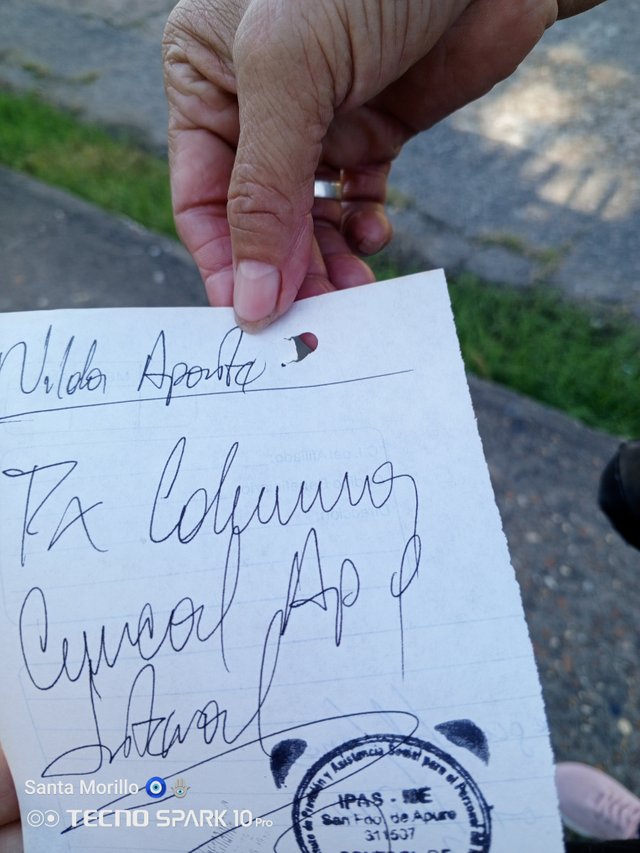 Nilda Aponte
Rx Columna
Cervical Ap y
Lateral
Instituto de Previsión y Asistencia Social para el Personal
IPAS - DE
San Fdo. de Apure
311537
CONTROL DE
Santa Morillo 🧿🪬
TECNO SPARK 10 Pro